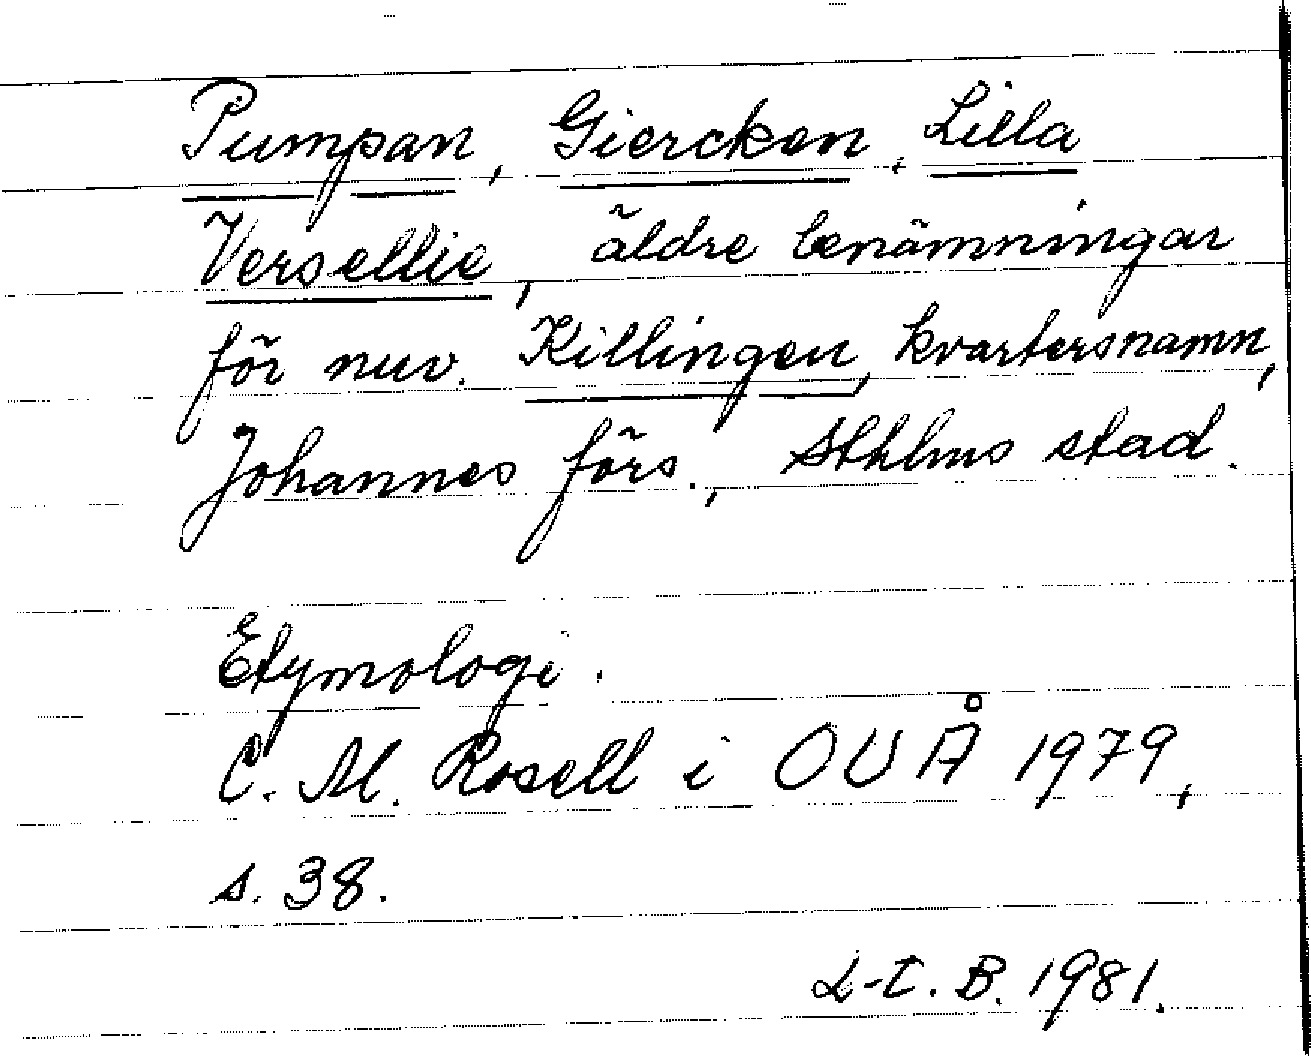 Pumpan, Giercken, Lilla
Versellie, äldre benämningar
för nuv. Killingen, kvartersnamn,
Johannes förs., Sthlms stad.
Etymologi.
C. M. Rosell i OUÅ 1979,
s. 38.
L-C. B. 1981.